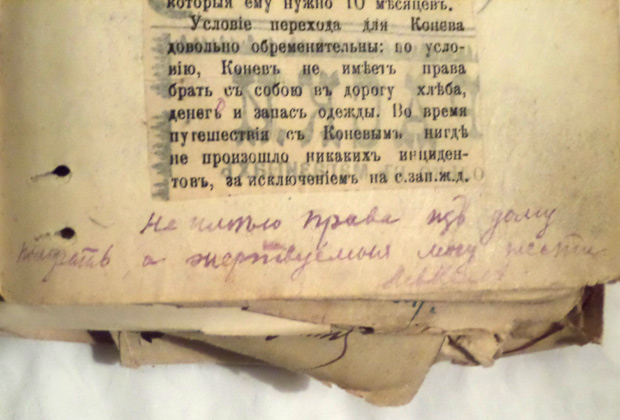 которыя ему нужно 10 мѣсяцевъ.
Условіе перехода для Конева
довольно обременительны: по усло-
вію, Коневъ не имѣетъ права
брать съ собою въ дорогу хлѣба,
денегъ и запасъ одежды. Во время
путешествія съ Коневымъ нигдѣ
не произошло никакихъ инциден-
товъ, за исключеніемъ на с.зап.ж.д.
Не имѣю права изъ дому
а жертвуемыя могу нести